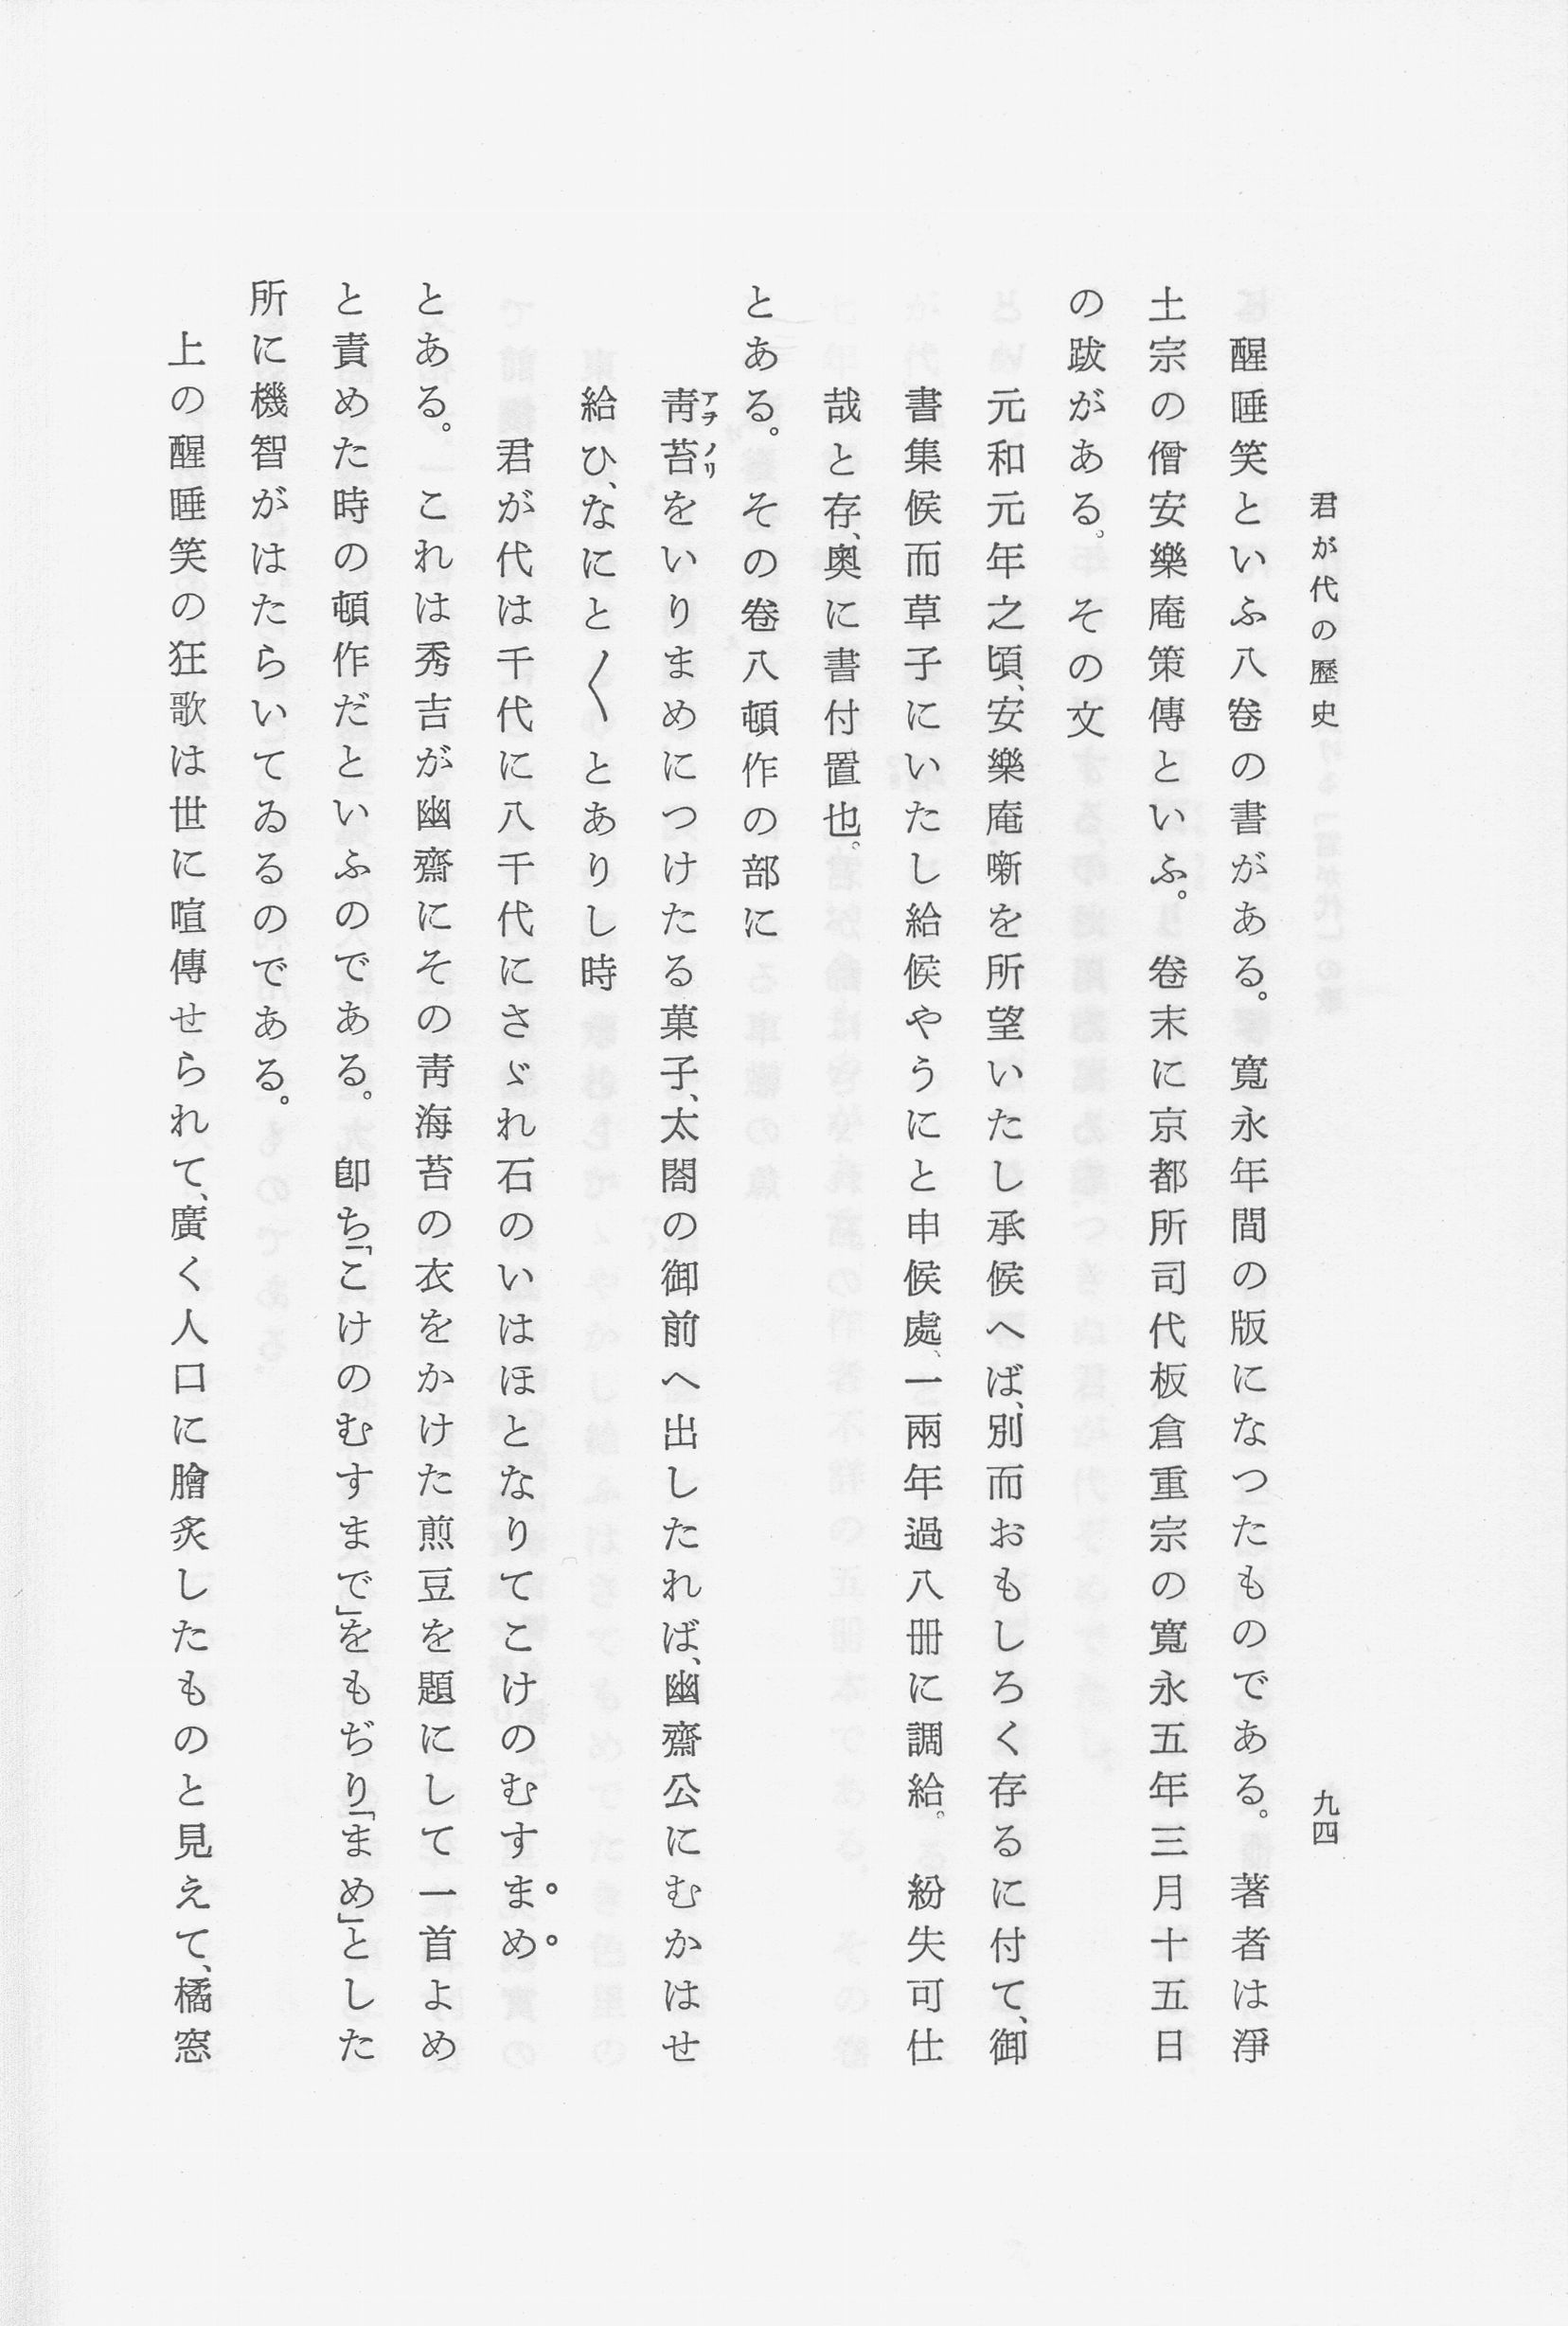 君が代の歷史
九四
醒睡笑といふ八卷の書がある。寬永年間の版になつたものである。著者は淨
土宗の僧安樂庵策傳といふ。卷末に京都所司代板倉重宗の寬永五年三月十五日
の跋がある。その文
元和元年之頃、安樂庵噺を所望いたし承候へば、別而おもしろく存るに付て、御
書集候而草子にいたし給候やうにと申候處、一兩年過八冊に調給。紛失可仕
哉と存、奧に書付置也。
とある。その卷八頓作の部に
靑苔アヲノリをいりまめにつけたる菓子、太閤の御前へ出したれば、幽齋公にむかはせ
給ひ、なにと〱とありし時
君が代は千代に八千代にさゞれ石のいはほとなりてこけのむすまめ
とある。これは秀吉が幽齋にその靑海苔の衣をかけた煎豆を題にして一首よめ
と責めた時の頓作だといふのである。卽ち「こけのむすまで」をもぢり「まめ」とした
所に機智がはたらいてゐるのである。
上の醒睡笑の狂歌は世に喧傳せられて、廣く人口に膾炙したものと見えて、橘窓